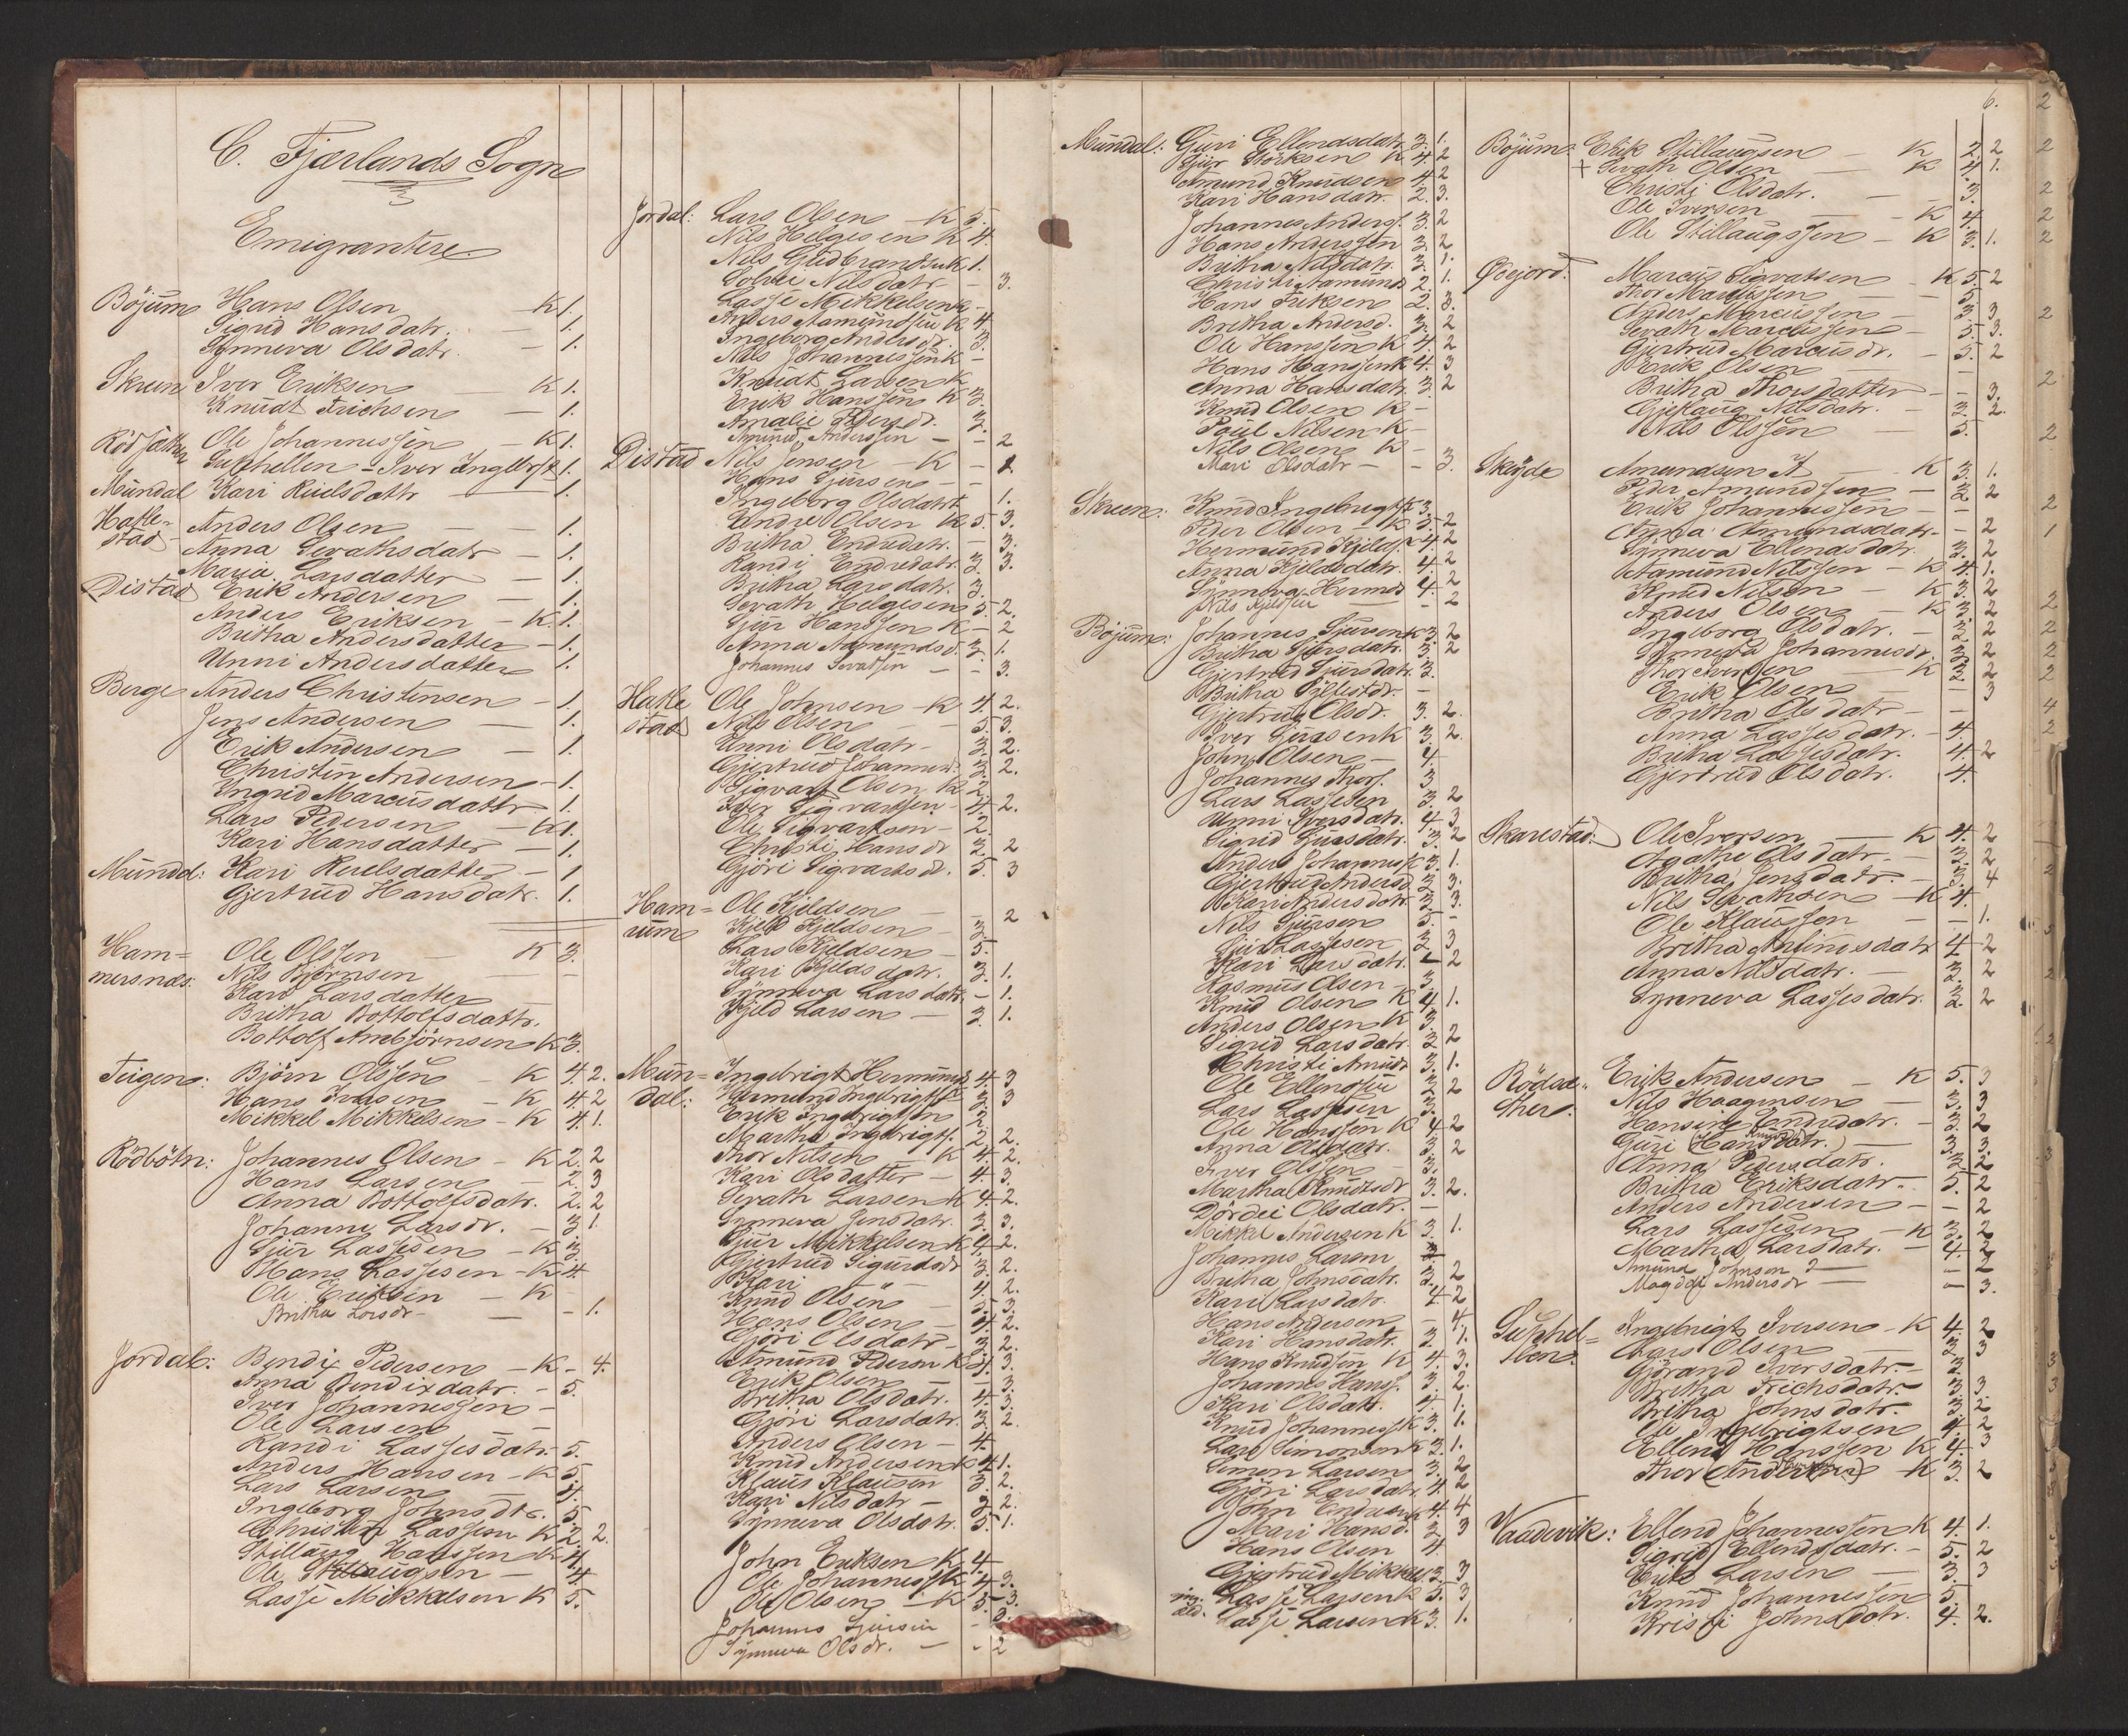 C. Fjærlands Sogn
Emigrantere.
Böjum Hans Olsen K 1.
Sigrid Hansdatr. - 1.
Synneva Olsdatr. - 1.
Skreen Iver Eriksen K 1.
Knudt Frichsen - 1.
Ole Johannessen - K 1.
Iver 1.
Mundal Kari Reielsdattr 1.
Hatle-
stad Anders Olsen - 1.
Anna Sevathsdatr - 1.
Maria Larsdatter - 1.
Distad Erik Andersen - 1.
Anders Eriksen - K. 1.
Britha Andersdatter - 1.
Unni Andersdatter 1.
Berge Anders Christensen - 1.
Jens Andersen 1.
Erik Andersen - 1.
Christen Andersen - 1.
Ingrid Marcusdattr 1.
Lars Pedersen - K 1.
Kari Hansdatter - 1.
Mundal: Kari Reielsdatter - 1
Gjertrud Hansdatr. 1.
Ham=
mersnæs: Ole Olssen K 3.
Nils Björnsen
Kari Larsdatter
Britha Bottolfsdattr.
Bottolf Ambjörnsen K 3.
Teigen: Björn Olssen - K 4. 2.
Hans Iversen - K 4. 2
Mikkel Mikkelsen - K 4. 1.
Rödbötn: Johannes Olsen - K 2. 2
Hans Larsen - 2. 3
Anna Bottolfsdatr. 2. 2
Johanne Larsdr. - 3 1.
Sjur Lassesen - K 3.
Hans Lassesen - K 4.
Ole Eriksen - K
Britha Larsdr - - 1.
Jordal: Bendix Pedersen - K - 4.
Anna Bendixdatr. - 5.
Iver Johannessen -
Ole Larsen -
Randi Lassesdatr. 5.
Anders Hansen - K 5.
Lars Larsen 5.
Ingeborg Johnsdtr. 5.
Christen Lassesen K 2. 2.
Stillaug Hanssen K 4.
Ole Stillaugsen - 4.
Lasse Mikkelsen K 5.
Jordal: Lars Olsen - K 5.
Nils Helgesen K 4.
Nils Gudbrandsen K 1.
Solvei Nilsdatr - 3.
Lasse Mikkelsen K -
Anders Aamundsen K 4
Ingeborg Andersdr. 3.
Nils Johannessen K -
Knudt Larsen K
Erik Hanssen K 3.
Amalie Pedersd. 3.
Amund Anderssen - - 2
Distad Nils Jensen - K - 2.
Hans Sjursen - -
Ingeborg Olsdatr 1.
Endre Olsen K 5. 3.
Britha Endredatr. - 3.
Randi Endredatr. 3. 3.
Britha Larsdatr. 3.
Sevath Helgesen 5. 2.
Sjur Hanssen K - 2
Anna Aamundsd. 3. 1.
Johannes Sevatsen - - 3.
Hatle
stad Ole Johnsen - K 4. 2.
Nils Olsen 5. 3.
Unni Olsdatr - 3. 2.
Gjertrud Johannesd. 3. 2.
Sigvart Olsen K 2.
Iver Sigvartsen - 4. 2.
Ole Sigvartsen - 2.
Christi Hansdr 3. 2
Gjöri Sigvartsd. 5. 3
Ham=
rum Ole Kjeldsen - - 2
Kjeld Kjeldsen - 3.
Lars Kjeldsen - 5.
Kari Kjeldsdatr. 3. 1.
Synneva Larsdatr. - 1.
Kjeld Larsen - 3. 1.
Mun=
dal: Ingebrigt Hermunds 4. 3
Hermund Ingebrigts 3. 3
Erik Ingebrigtsen 2.
Martha Ingebrigts. 2. 2.
Thor Nilsen - K 4. 2.
Kari Olsdatter - 4. 3.
Sevath Larsen K 4. 2.
Synneva Jensdatr. 3. 3.
Sjur Mikkelsen K 4. 2.
Gjertrud Sigurdsdr 3. 2.
Kari " 4. 2.
Knud Olsen 5. 3.
Hans Olsen - 4. 2.
Gjöri Olsdatr. - 3. 2.
Amund Pedersen K 4. 3.
Erik Olsen - - 3.
Britha Olsdatr. - 4. 3.
Gjöri Larsdatr. 3. 2.
Anders Olsen - 4.
Knud Andersen K 4. 1.
Klaus Klausen 3. 2.
Kari Nilsdatr - 3. 2.
Synneva Olsdatr. 5. 1.
John Eriksen K 4.
Ole Johannessen K 4. 3.
Ole Olsen - K 5. 3.
Johannes Sjursen - 3.
Synneva Olsdr. - - 2
6.
Mundal: Guri Ellendsdatr. 3. 1.
Sjur Störksen K 4. 2
Amund Knudsen 4. 2
Kari Hansdatr. 2. 3.
Johannes Anderss. 3. 2
Hans Anderssen 3. 2
Britha Nilsdatr. 3. 1.
Christi Aamund 2. 1.
Hans Eriksen 2. 3.
Britha Andersd. 3. 2
Ole Hanssen K 4. 2
Hans Hanssen K 4. 3
Anna Hansdatr. 3. 2
Knud Olsen K -
Paul Nilsen K -
Nils Olsen K -
Mari Olsdatr - - 3.
Skreen: Knud Ingebrigts K 3.
Peder Olsen - K 5. 2
Hermund Kjelds. K 4. 2
Anna Kjeldsdatr. 4. 2
Synneva Hermd 4. 2
Nils Kjeldsen - 2
Böjum: Johannes Sjursen K 3. 2
Britha Sjursdatr. 3. 2
Gjertrud Sjursdatr. 3.
Britha -
Gjertrud Olsdr. 3. 2.
Iver Sjursen K 3. 2.
John Olsen - 4.
Johannes Thors. 3.
Lars Lassesen 3. 2
Unni Iversdatr. 4. 3
Sigrid Sjursdatr. 3. 2
Anders Johannes K 3. 1.
Gjertrud Andersd 3. 3.
Kari Andersdatr. 3. 3.
Nils Sjursen 5. -
Sjur Lassesen 2. 3
Kari Larsdatr. - 2
Rasmus Olsen - 3.
Knud Olsen K 4. 1.
Anders Olsen K 3.
Sigrid Larsdatr. 3. 2
Christi Amundr 3. 1.
Ole Ellendsen 3. 2
Lars Lassesen 3.
Ole Hanssen K 4. 2
Anna Olsdatr. 3. 2
Iver Olssen - 3.
Martha Knudtsdr 3. 2.
Dordei Olsdatr. -
Mikkel Andersen K 3. 1.
Johannes Larsen 3.
Britha Johnsdatr. 3. 2
Kari Larsdatr. 4. 2
Hans Andersen - 4.
Kari Hansdatr. 3. 1.
Hans Knudsen K 4. 3.
Johannes Hanss. 3. 2.
Kari Olsdatr. 4. 1.
Knud Johanness K 3. 1.
Lars Simonsen K 3. 1.
Simon Larsen 3. 2
Gjöri Larsdatr 4. 2
John Endresen K 4. 4
Mari Hansd. 3. 3
Hans Olsen 4.
Gjertrud Mikkels. 3. 3
yng. Lasse Larsen K 5. 3
æld. Lasse Larsen K 3. 1.
Böjum: Erik Stillaugsen - K 2. 2
+ Sevath Olsen - K 4. 1.
Christi Olsdatr. - 3.
Ole Iversen - K 4.
Ole Stillaugssen - K 3. 1.
Marcus Sigvatsen - K 5. 2
Thor Marcussen - - 5.
Anders Marcussen - 3. 3
Sevath Marcussen - 5. 3.
Gjertrud Marcusdr. - 5. 2
Erik Olsen -
Britha Thorsdatter - - 3.
Gjertrud Nilsdatr. - 3. 2.
Nils Olssen - 5.
Amundsen A - K 3. 1.
Peder Amundsen - 2. 2
Erik Johannessen - -
Anna Amundsdatr. - - 2
Synneva Ellendsdatr. 3. 2
Aamund Nilssen - K 4. 1.
Knud Nilsen - K 3. 2
Anders Olsen - K 3. 2
Ingeborg Olsdatr. - 2. 2
Synneva Johannesdr. 3. 2
Thor Iversen K 2. 2
Erik Olsen - 3
Britha Olsdatr - -
Anna Lassesdatr. - 4.
Britha Lassesdatr. 4. 2
Gjertrud Olsdatr. 4.
Skarestad: Ole Iversen - K 4. 2
Agathe Olsdatr. - 3. 2
Britha Jensdatr. - 3. 4
Nils Sevathsen - K 4.
Ole Klaussen - - 1.
Britha datr 4. 2
Anna Nilsdatr. - 3. 2
Synneva Lassesdatr. 2. 2
Rödse-
ther: Erik Andersen - K 5. 3
Nils Haagensen - 3. 3
Hansine Endredatr. - 3. 2
Guri (Hansdatr.) - 3. 3.
Anna Pedersdatr. 3. 2
Britha Eriksdatr. 5. 2
Anders Andersen - - 2
Lars Lassesen - K 3. 2
Martha Larsdatr. - 4. 2
Amund Johnsen ? - - 2
Magdel Andersdr - - 3.
Suphel=
len: Ingebrigt Iversen - K 4. 2
Lars Olsen - 3. 3
Gjörand Iversdatr. - 3.
Britha Frichsdatr. - 3. 3
Britha Johnsdatr. 3. 2
Ole Ingebrigtsen 4. 2
Ellend Hanssen K 4. 3
Thor (Andersen) - K 3. 2
Vaadevik: Ellend Johannessen K 4. 1.
Sigrid Ellendsdatr. - 5. 2
Erik Larsen - 3. 3
Knud Johannessen 5.
Kristi Johnsdatr. 4. 2.